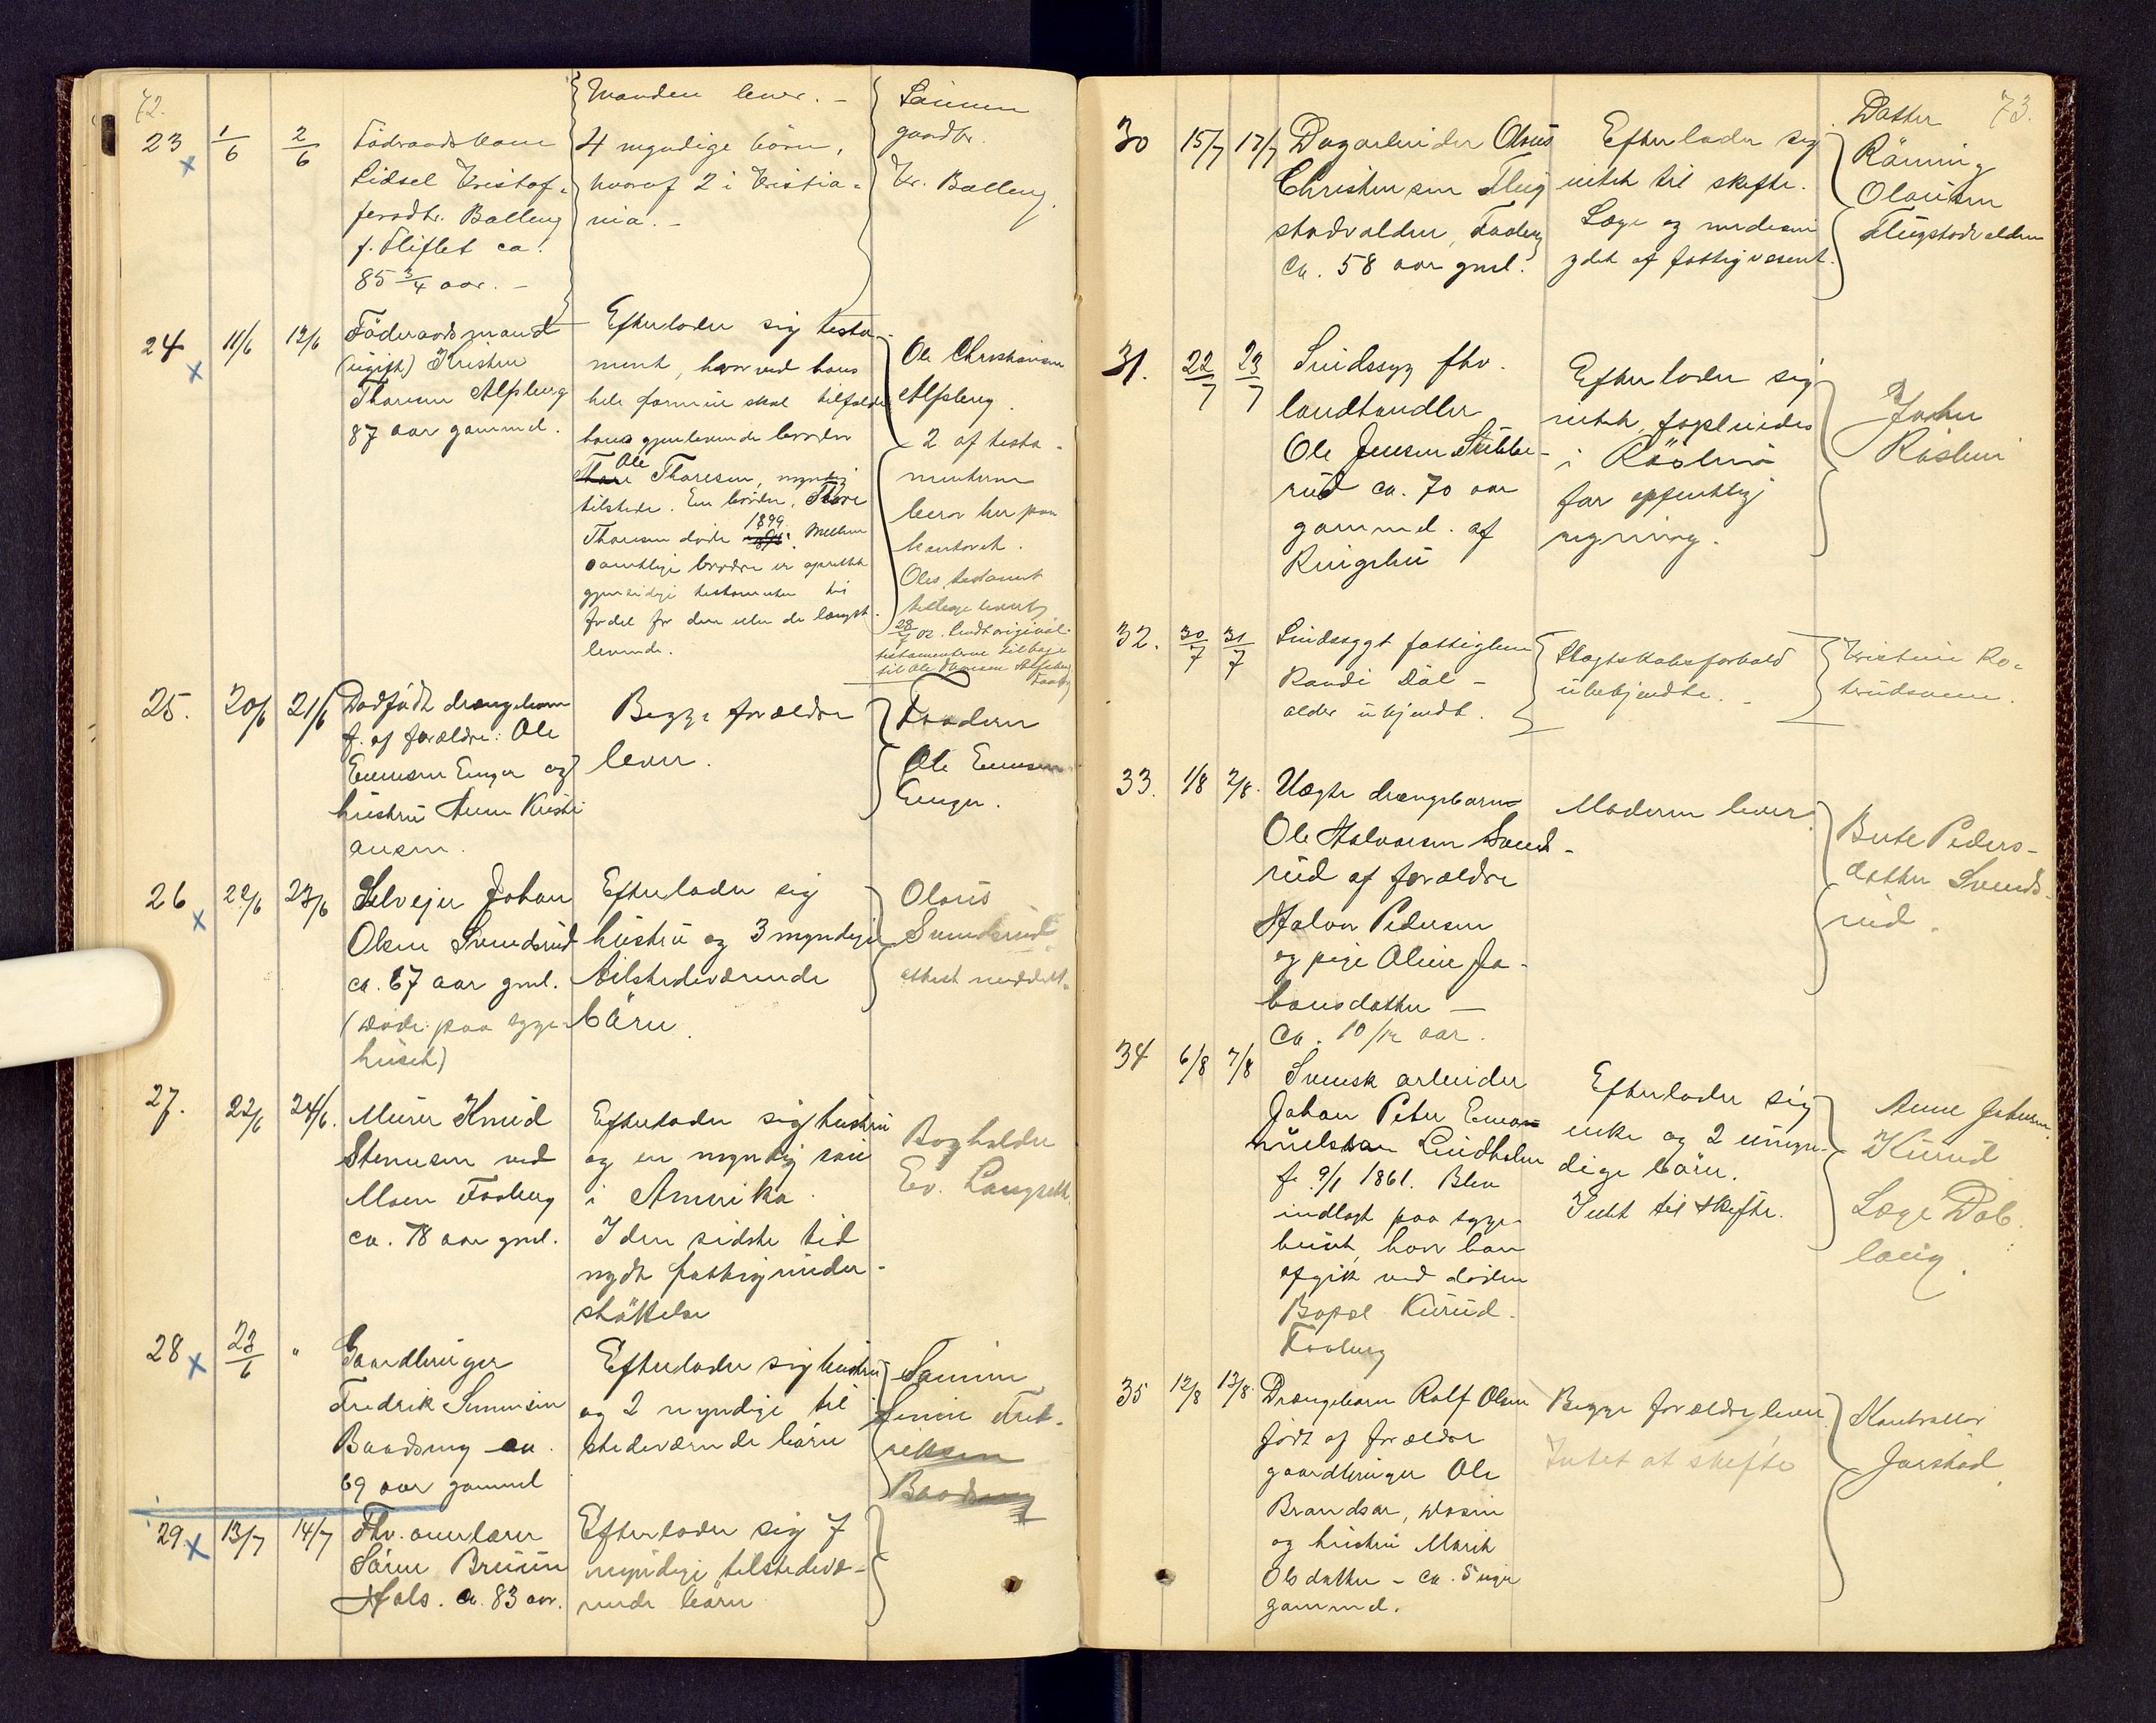 72.
23
1/6
2/6
Föderaadskone
Lidsel Kristof-
fersdtr. Balberg
f. Fliflet ca.
85 3/4 aar. -
Manden lever. -
4 myndige börn,
hvoraf 2 i Kristia-
nia. -
Sönnen
gaardbr.
Kr. Balberg.
24
11/6
12/6
Föderaadsmand
(ugift) Kristen
Thoresen Alfsberg
87 aar gammel.
Efterlader sig testa-
ment, hvorved hans
hele formue skal tilfalde
hans gjenlevende broder
Ole
Thoresen, myndig
tilstede. En broder, Thore
Thoresen döde 1899. Mellem
samtlige brödre er oprettet
gjensidige testamenter til
fordel for den eller de længst
levende.
Ole Christiansen
Alfsberg.
2 af testa-
menterne
beror her paa
kontoret.
Oles testament
tilbage leveret
28/4 02. originale
testamenterne tilbage
til Ole Thoresen Alfsberg
Faaberg
25.
20/6
21/6
Dödfödt drengebarn
f. af forældre: Ole
Evensen Enger og
hustru Anne Kristi-
ansen.
Begge forældre
lever.
Faderen
Ole Evensen
Enger.
26
22/6
23/6
Selveier Johan
Olsen Svendsrud
ca. 67 aar gml.
(döde paa syge-
huset)
Efterlader sig
hustru og 3 myndige
tilstedeværende
börn.
Olaus
Svendsrud
attest meddelt.
27.
22/6
24/6.
Murer Knud
Stensen ved
Moen Faaberg
ca. 78 aar gml.
Efterlader sig hustru
og en myndig sön
i Amerika.
I den sidste tid
nydt fattigunder-
stöttelse
Bogholder
Ev. Langseth
28
23/6
"
Gaardbruger
Fredrik Simensen
Baadseng ca.
69 aar gammel
Efterlader sig hustru
og 2 myndige til
stedeværende börn
Sönnen
Simen Fred-
riksen
Baadseng
29.
13/7
14/7
Fhv. overlærer
Sören Bruun
Hals. ca. 83 aar.
Efterlader sig 7
myndige tilstedevæ-
rende börn
73.
30
15/7
17/7
Dagarbeider Olaus
Christensen Flug
stadvalden, Faaberg
ca. 58 aar gml.
Efterlader sig
intet til skifte.
Læge og medesin
ydet af fattigvæsenet.
Datter
Rönning
Olausen
Flugstadvalden
31.
22/7
23/7
Sindssyg fhv.
landhandler
Ole Jensen Stubbe-
rud ca. 70 aar
gammel. af
Ringebu
Efterlader sig
intet, forpleiedes
i Röslien
for offentlig
regning.
Johan
Röslien
32.
30/7
31/7
Sindssygt fattiglem
Randi Dal -
alder ubekjendt.
Slægtskabsforhold
ubekjendte. -
Kristine Ro-
terudsveen.
33.
1/8
2/8.
Uægte drengebarn
Ole Halvorsen Svends-
rud af forældre
Halvor Pedersen
og pige Oline Jo-
hansdatter -
ca. 10/12 aar.
Moderen lever.
Berte Peders-
datter Svends-
rud.
34
6/8
7/8
Svensk arbeider
Johan Peter Eman-
nuelsson Lindholm
f. 9/1 1861. Blev
indlagt paa syge-
huset, hvor han
afgik ved döden
Bopæl Kurud.
Faaberg
Efterlader sig
enke og 2 umyn-
dige börn.
Intet til skifte.
Anne Johansen
Kurud
Læge Dob-
loug.
35
12/8
13/8.
Drengebarn Rolf Olsen
födt af forældre
gaardbruger Ole
Brandsar, Mosen
og hustru Marit
Olsdatter - ca. 5 uger
gammel.
Begge forældre lever.
Intet at skifte
Kontrollör
Jarstad